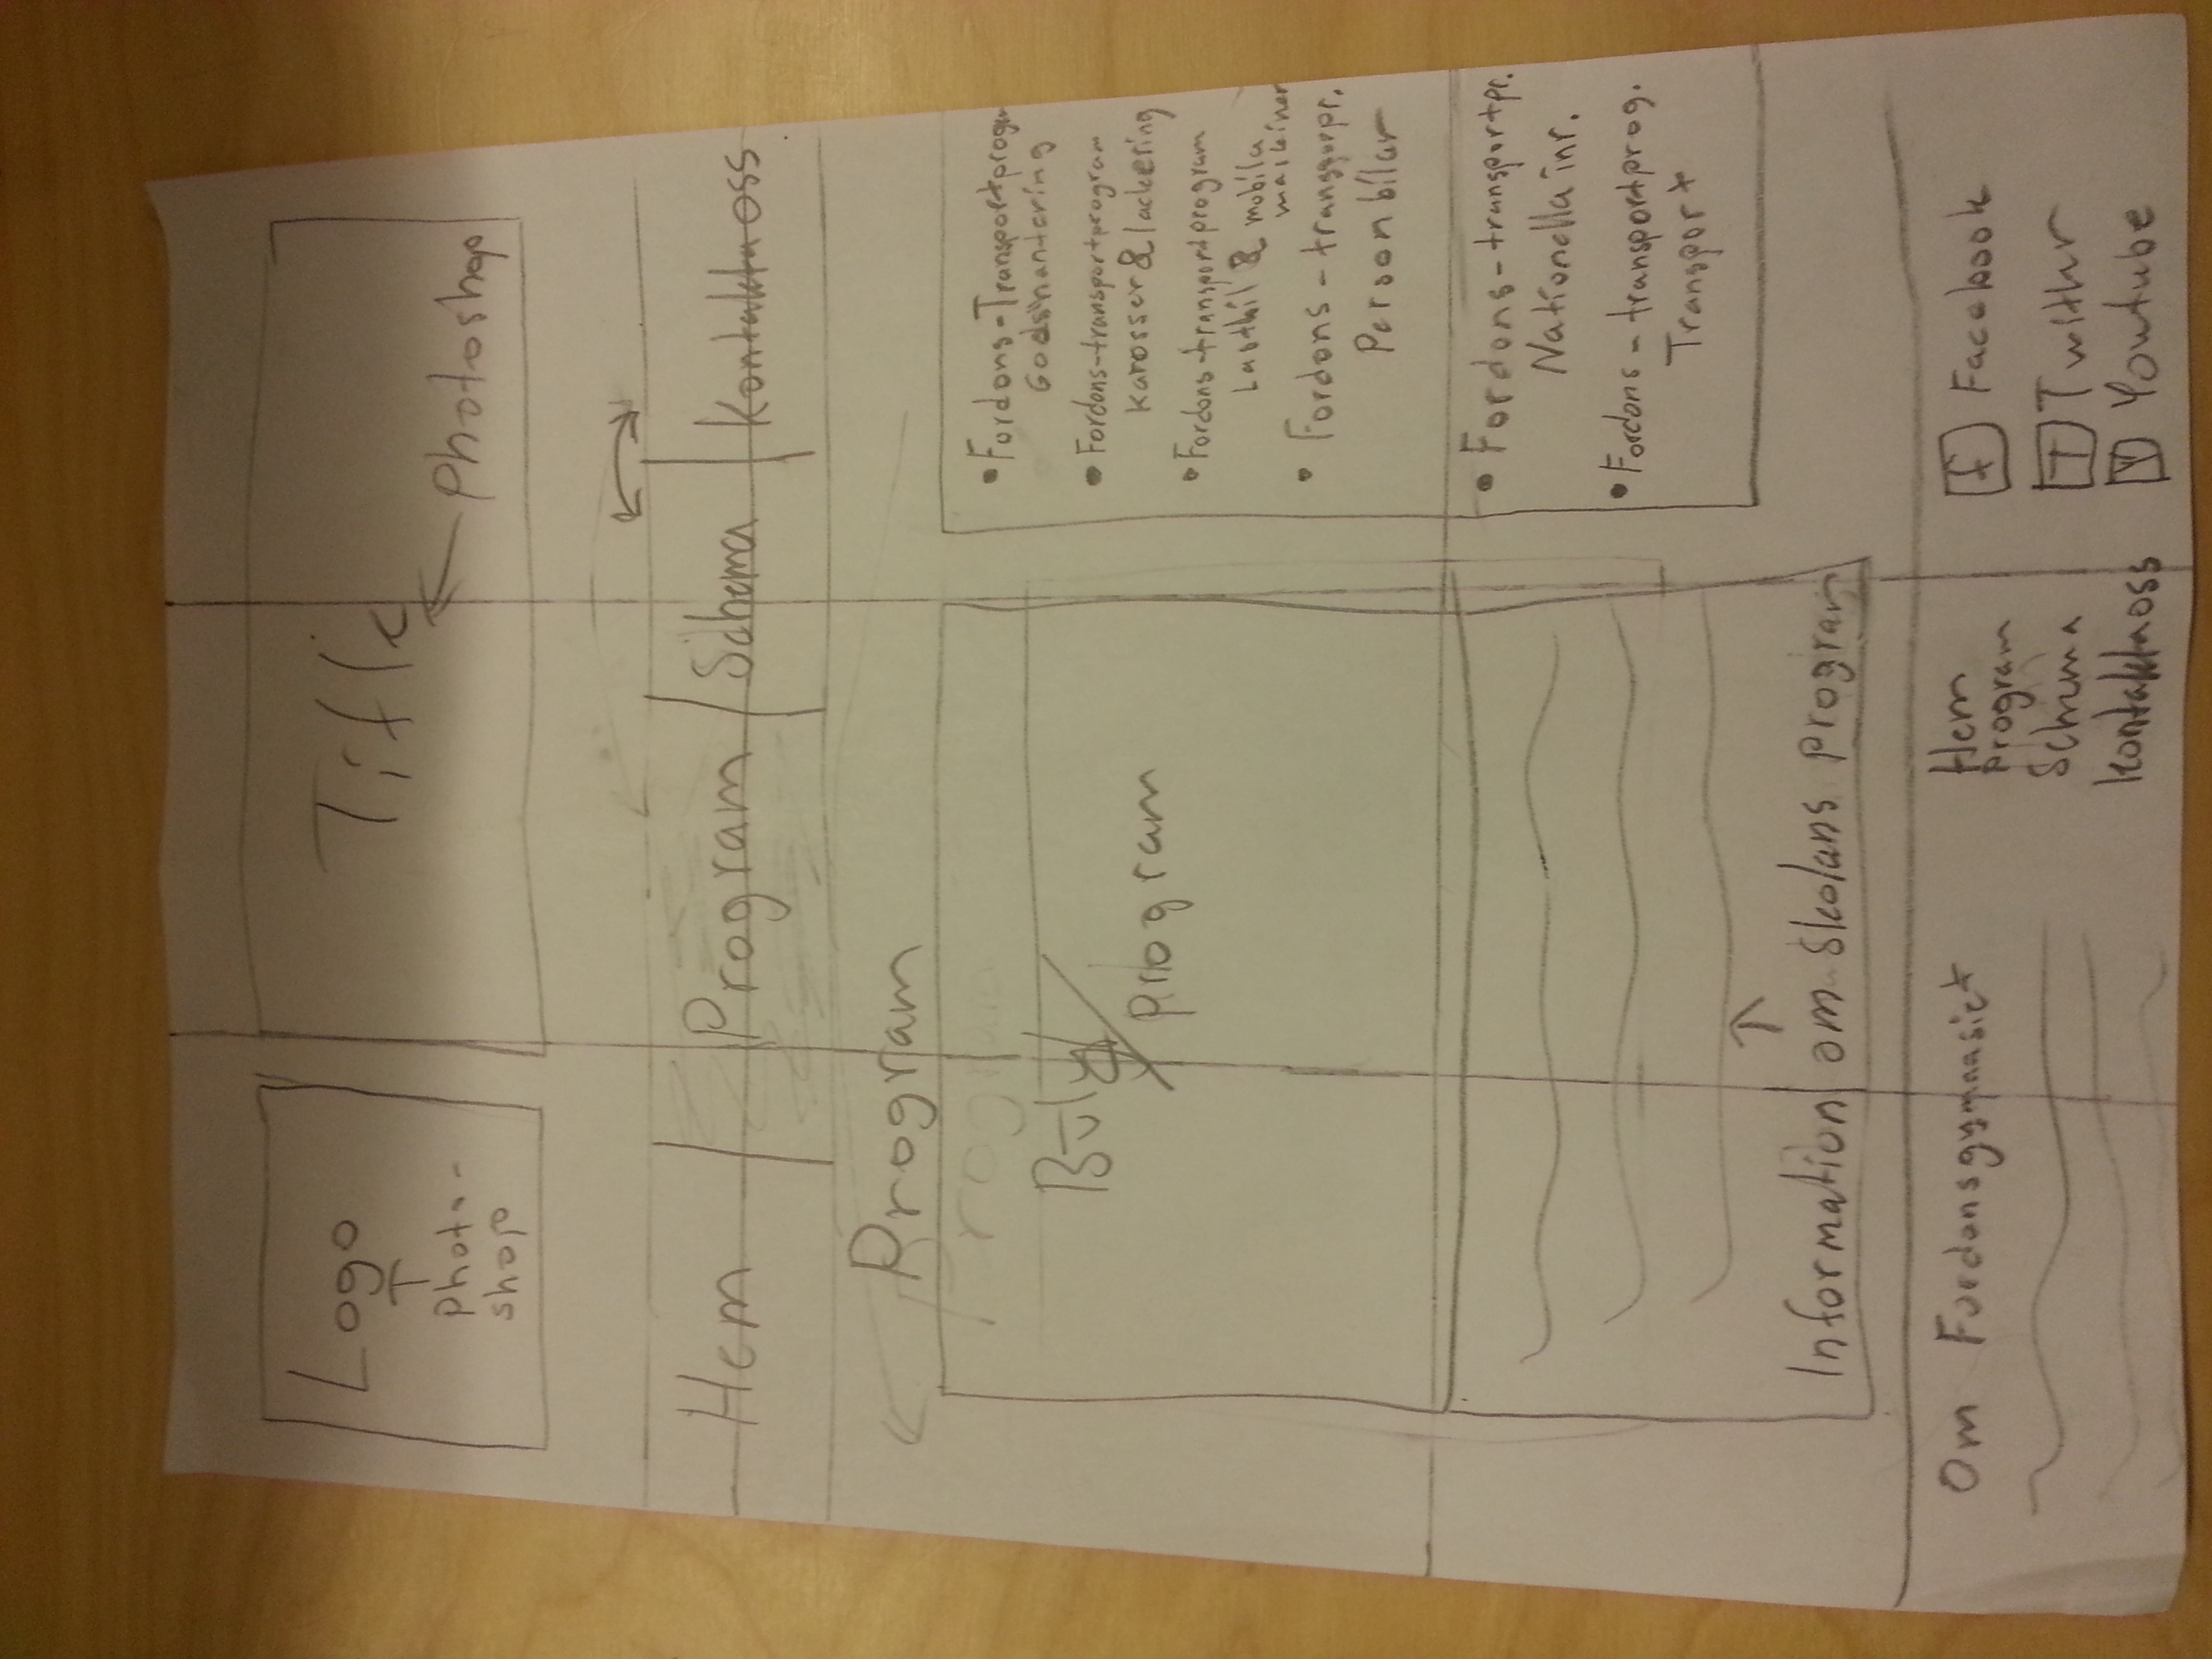 Logo
Photo-
shop
Title
Photoshop
Hem
Program
Schema
Kontakta oss
Program
Program
program
• Fordons-Transportprogram
Godshantering
• Fordons-transportprogram
Karosser & lackering
• Fordons-transportprogram
Lastbil & mobila
maskiner
• Fordons - transporpr.
Personbilar
• Fordons-transportpr.
Nationella inr.
• Fordons - transportprog.
Transport
Information om Skolans program
Om Fordonsgymnasiet
Hem
Program
Schema
Kontakta oss
f Facebook
T Twitter
Y Youtube